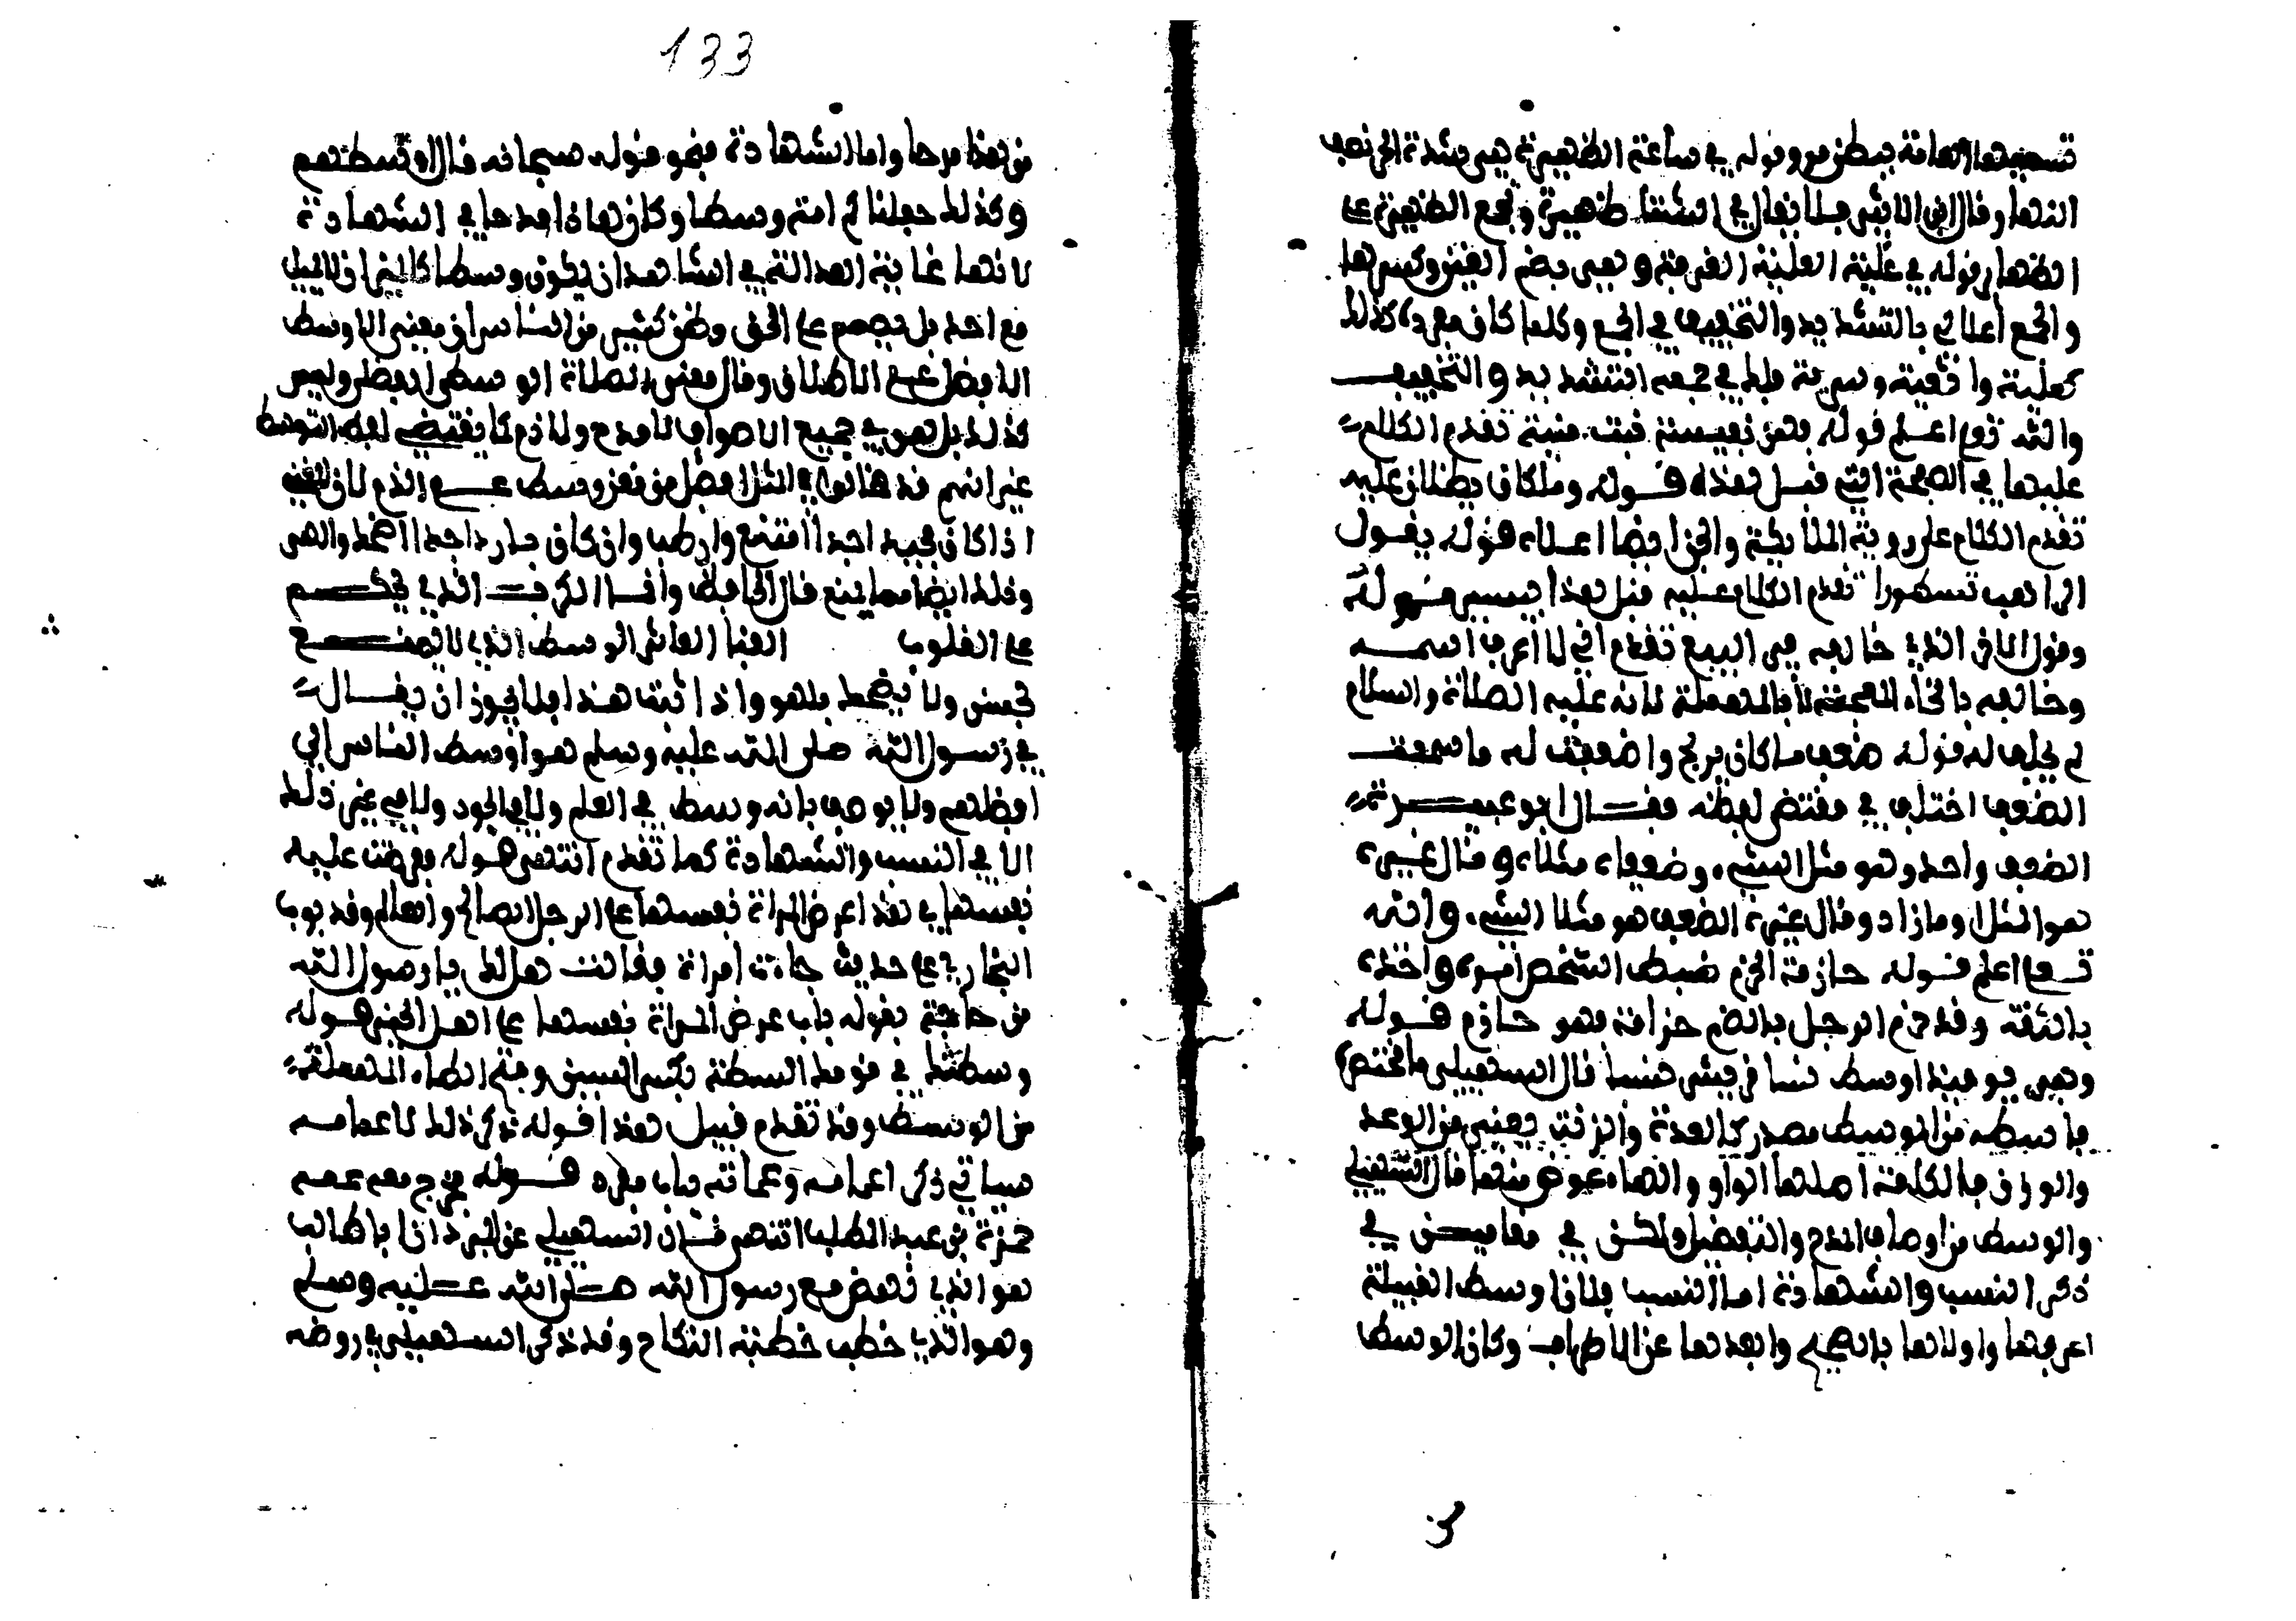 تسميها العامة بطن مرو قوله في ساعة الظهيرة هي شدة الحر نصف
النهار وقال ابن الاثير ولا يقال في الشتا ظهيرة وتجمع الظهيرة على
الظهاير قوله في علية العلية الغرفة وهي بضم العين وكسرها
والجمع اعلالي بالتشديد والتخفيف في الجمع وكلما كان مفرده كذلك
كعلية واثفية وسرية فلك في جمعه التشديد والتخفيف
والله تع اعلم قوله بنفيسة بنت منية تقدم الكلام
عليها في الصفحة التي قبل هذه قوله وملكان يظلان عليه
تقدم الكلام على روية الملائكة والجن ايضا اعلاه قوله يقول
الراهب نسطورا تقدم الكلام عليه قبل هذا بيسير قوله
وقول الاخر الذي خالفه في البيع تقدم اني لا اعرف اسمه
وخالفه بالخاء المعجمة لا بالمهملة لانه عليه الصلاة والسلام
لم يحلف له قوله ضعف ما كان يربح واضعفت له ما سمت
الضعف اختلف في مقتضى لفظه فقال ابو عبيدة
الضعف واحد وهو مثل الشيء وضعفاه مثلاه وقال غيره
هو المثل وما زاد وقال غيره الضعف هو مثلا الشيء والله
تع اعلم قوله حازمة الحزم ضبط الشخص امره واخذه
بالثقة وقد حزم الرجل بالضم حزامة فهو حازم قوله
وهي يومئذ اوسط نسا قريش نسبا قال السهيلي ما اختصره
ما سطه من الوسط مصدر كالعدة والزنة يعني من الوعد
والوزن فالكلمة اصلها الواو والهاء عوض منها قال السهيلي
والوسط من اوصاف المدح والتفضيل ولكن في مقامين في
ذكر النسب والشهادة اما النسب فلان اوسط القبيلة
اعرقها واولاها بالصميم وابعدها عن الاطراف وكان الوسط
133
من هذا مدحا واما الشهادة فنحو قوله سبحانه قال اوسطهم
وكذلك جعلناكم امة وسطا وكان هاذا مدحا في الشهادة
لانها غاية العدالة في الشاهد ان يكون وسطا كالميزان لا يميل
مع احد بل يصمم على الحق وظن كثير من الناس ان معنى الاوسط
الافضل على الاطلاق وقال معنى الصلاة الوسطى الفضلى وليس
كذلك بل هو في جميع الاوصاف لا مدح ولا ذم كما يقتضي لفظ التوسط
غير انهم قد قالوا في المثل اثقل من مغن وسط على الذم لان المغني
اذا كان مجيدا جدا امتع واطرب وان كان باردا جدا اضحك والهى
وذلك ايضا مما يمتع قال الجاحظ وانما الكرب الذي يجثم
على القلوب الغنا الفاتر الوسط الذي لا يمتع
بحسن ولا يضحك بلهو واذا ثبت هذا فلا يجوز ان يقال
في رسول الله صلى الله عليه وسلم هو اوسط الناس اي
افضلهم ولا يوصف بانه وسط في العلم ولا في الجود ولا في غير ذلك
الا في النسب والشهادة كما تقدم انتهى قوله فعرضت عليه
نفسها في هذا عرض المراة نفسها على الرجل الصالح والعالم وقد بوب
البخاري على حديث جاءت امراة فقالت هل لك يا رسول الله
من حاجة بقوله باب عرض المراة نفسها على اهل الخير قوله
وسطتك في قومك السطة بكسر السين وفتح الطاء المهملة
من الوسط وقد تقدم قبيل هذا قوله ذكر ذلك لاعمامه
سياتي ذكر اعمامه وعماته بباب مفرد قوله فخرج معه عمه
حمزة بن عبد المطلب انتهى قال السهيلي عن المبرد ان ابا طالب
هو الذي نهض مع رسول الله صلى الله عليه وسلم
وهو الذي خطب خطبة النكاح وقد ذكر السهيلي في روضه